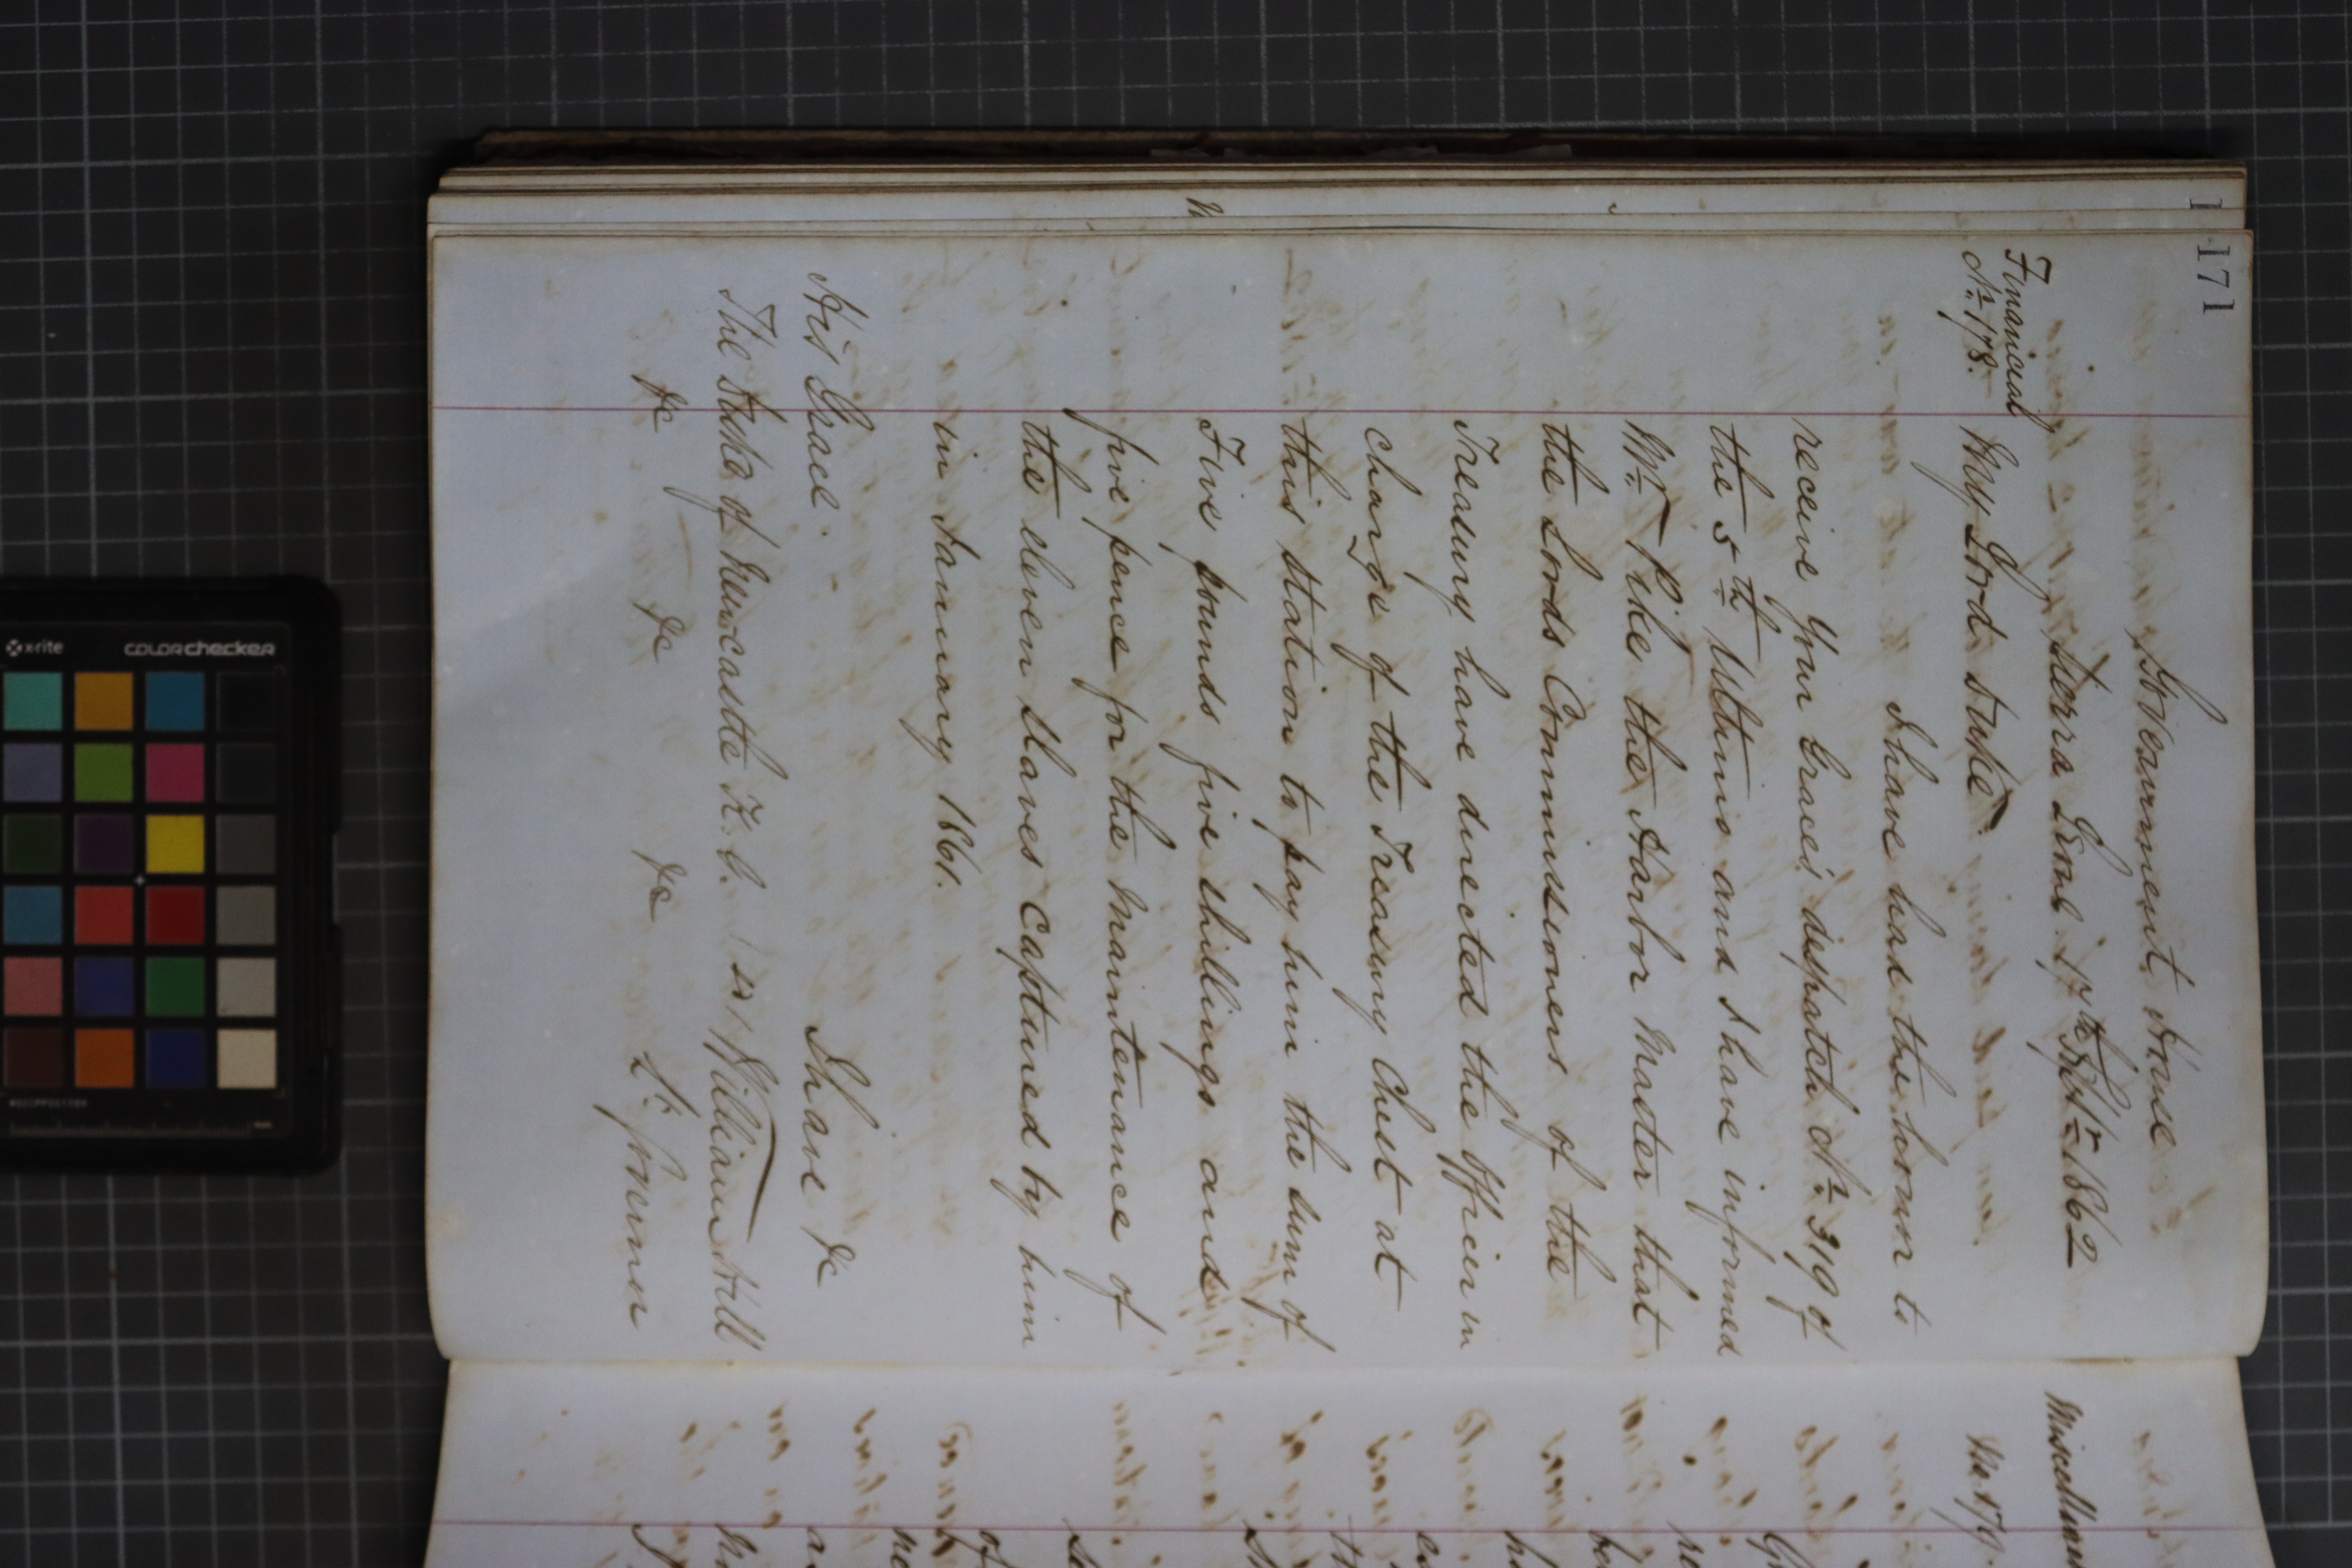 171
Government House
Sierra Leone 17th Septr 1862
Financial
No. 178.
My Lord Duke,
I have had the honor to
receive Your Grace's despatch No. 319 of
the 5th Ultimo and I have informed
Mr. Pike the Harbor Master that
the Lords Commissioners of the
Treasury have directed the Officer in
charge of the Treasury Chest at
this station to pay him the sum of
Five pounds five shillings and
five pence for the maintenance of
the eleven slaves captured by him
in January 1861.
I have &c
His Grace
The Duke of Newcastle K.G.
William Hill
&c &c &c
Lt. Govenor
No. 179
x-rite
colorchecker